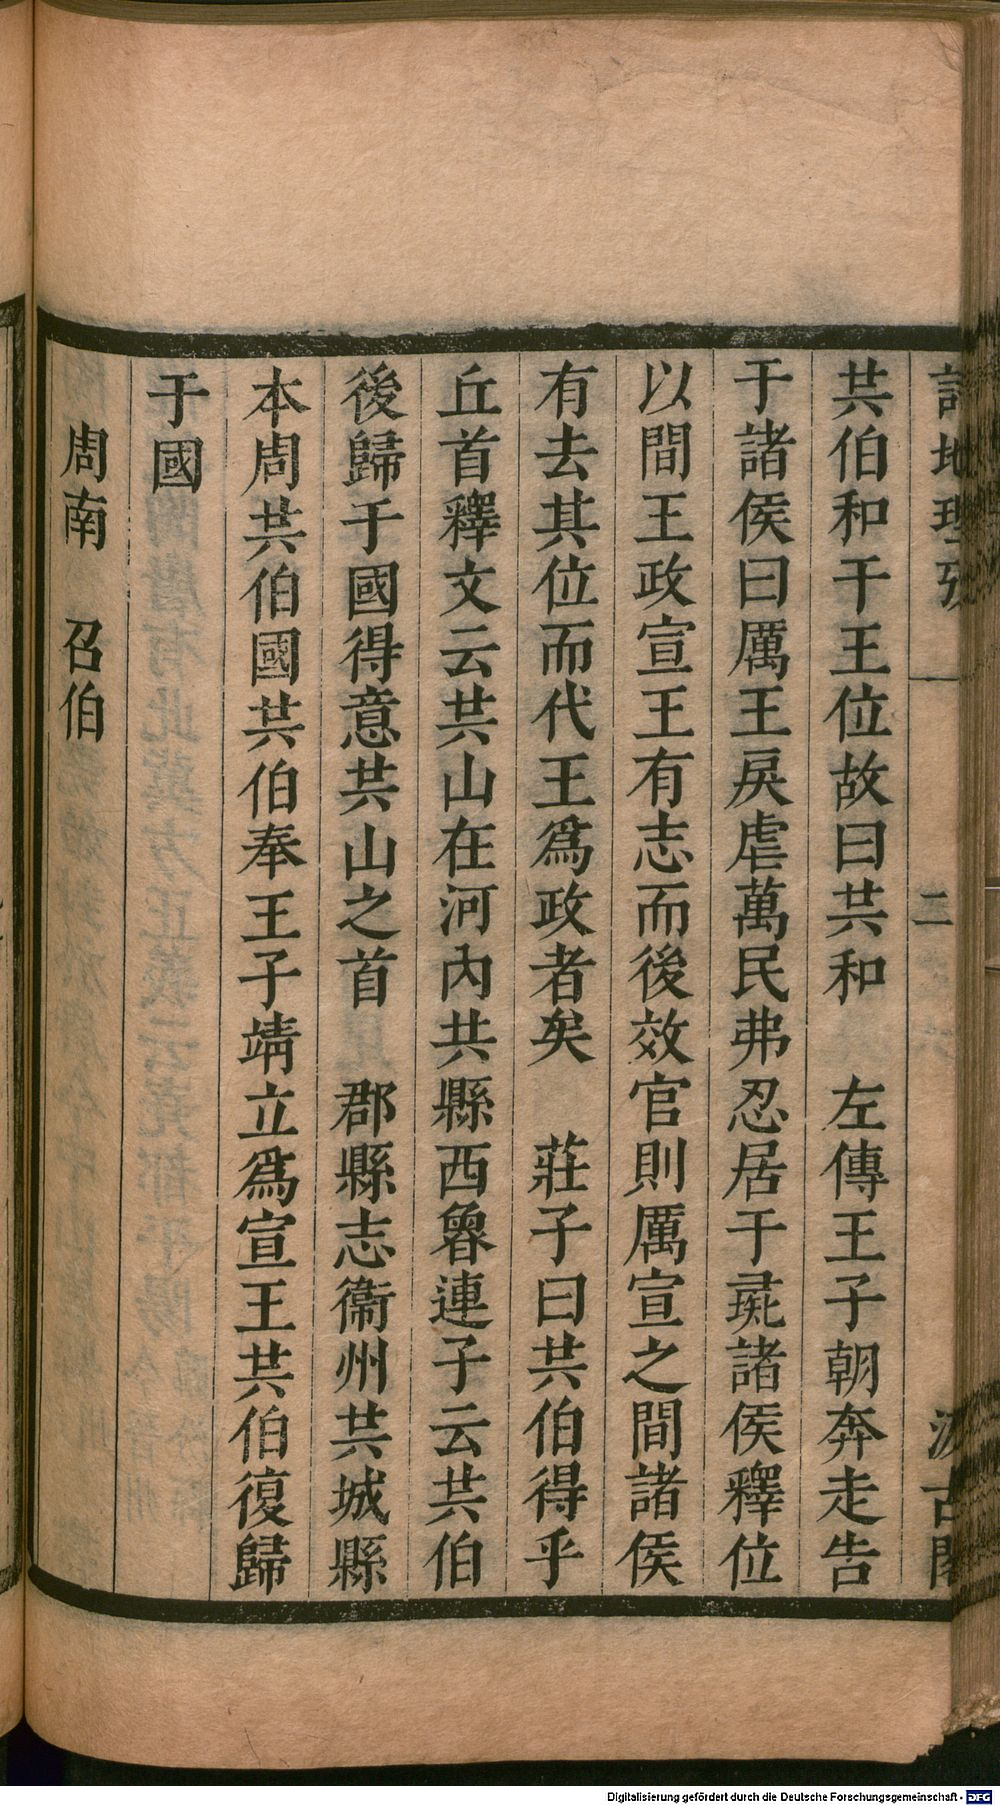 詩地理攷　二　汲古閣
共伯和干王位故曰共和　左傳王子朝奔走告
于諸侯曰厲王戾虐萬民弗忍居于彘諸侯釋位
以間王政宣王有志而後效官則厲宣之間諸侯
有去其位而代王爲政者矣　莊子曰共伯得乎
丘首釋文云共山在河內共縣西魯連子云共伯
後歸于國得意共山之首　郡縣志衞州共城縣
本周共伯國共伯奉王子靖立爲宣王共伯復歸
于國
周南　召伯
Digitalisierung gefördert durch die Deutsche Forschungsgemeinschaft - DFG